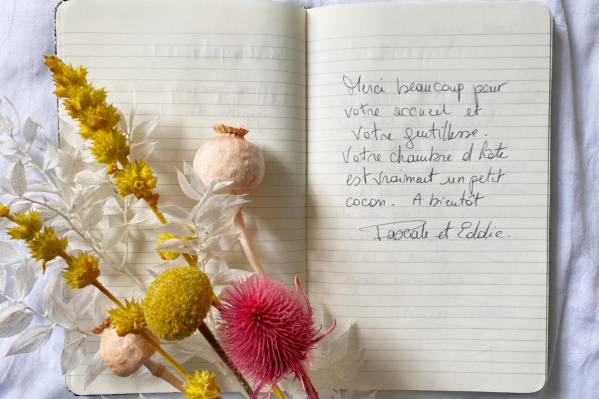 Merci beaucoup pour
votre accueil et
votre gentillesse.
Votre chambre d'hôte
est vraiment un petit
cocon. A bientôt
Pascale et Eddie.